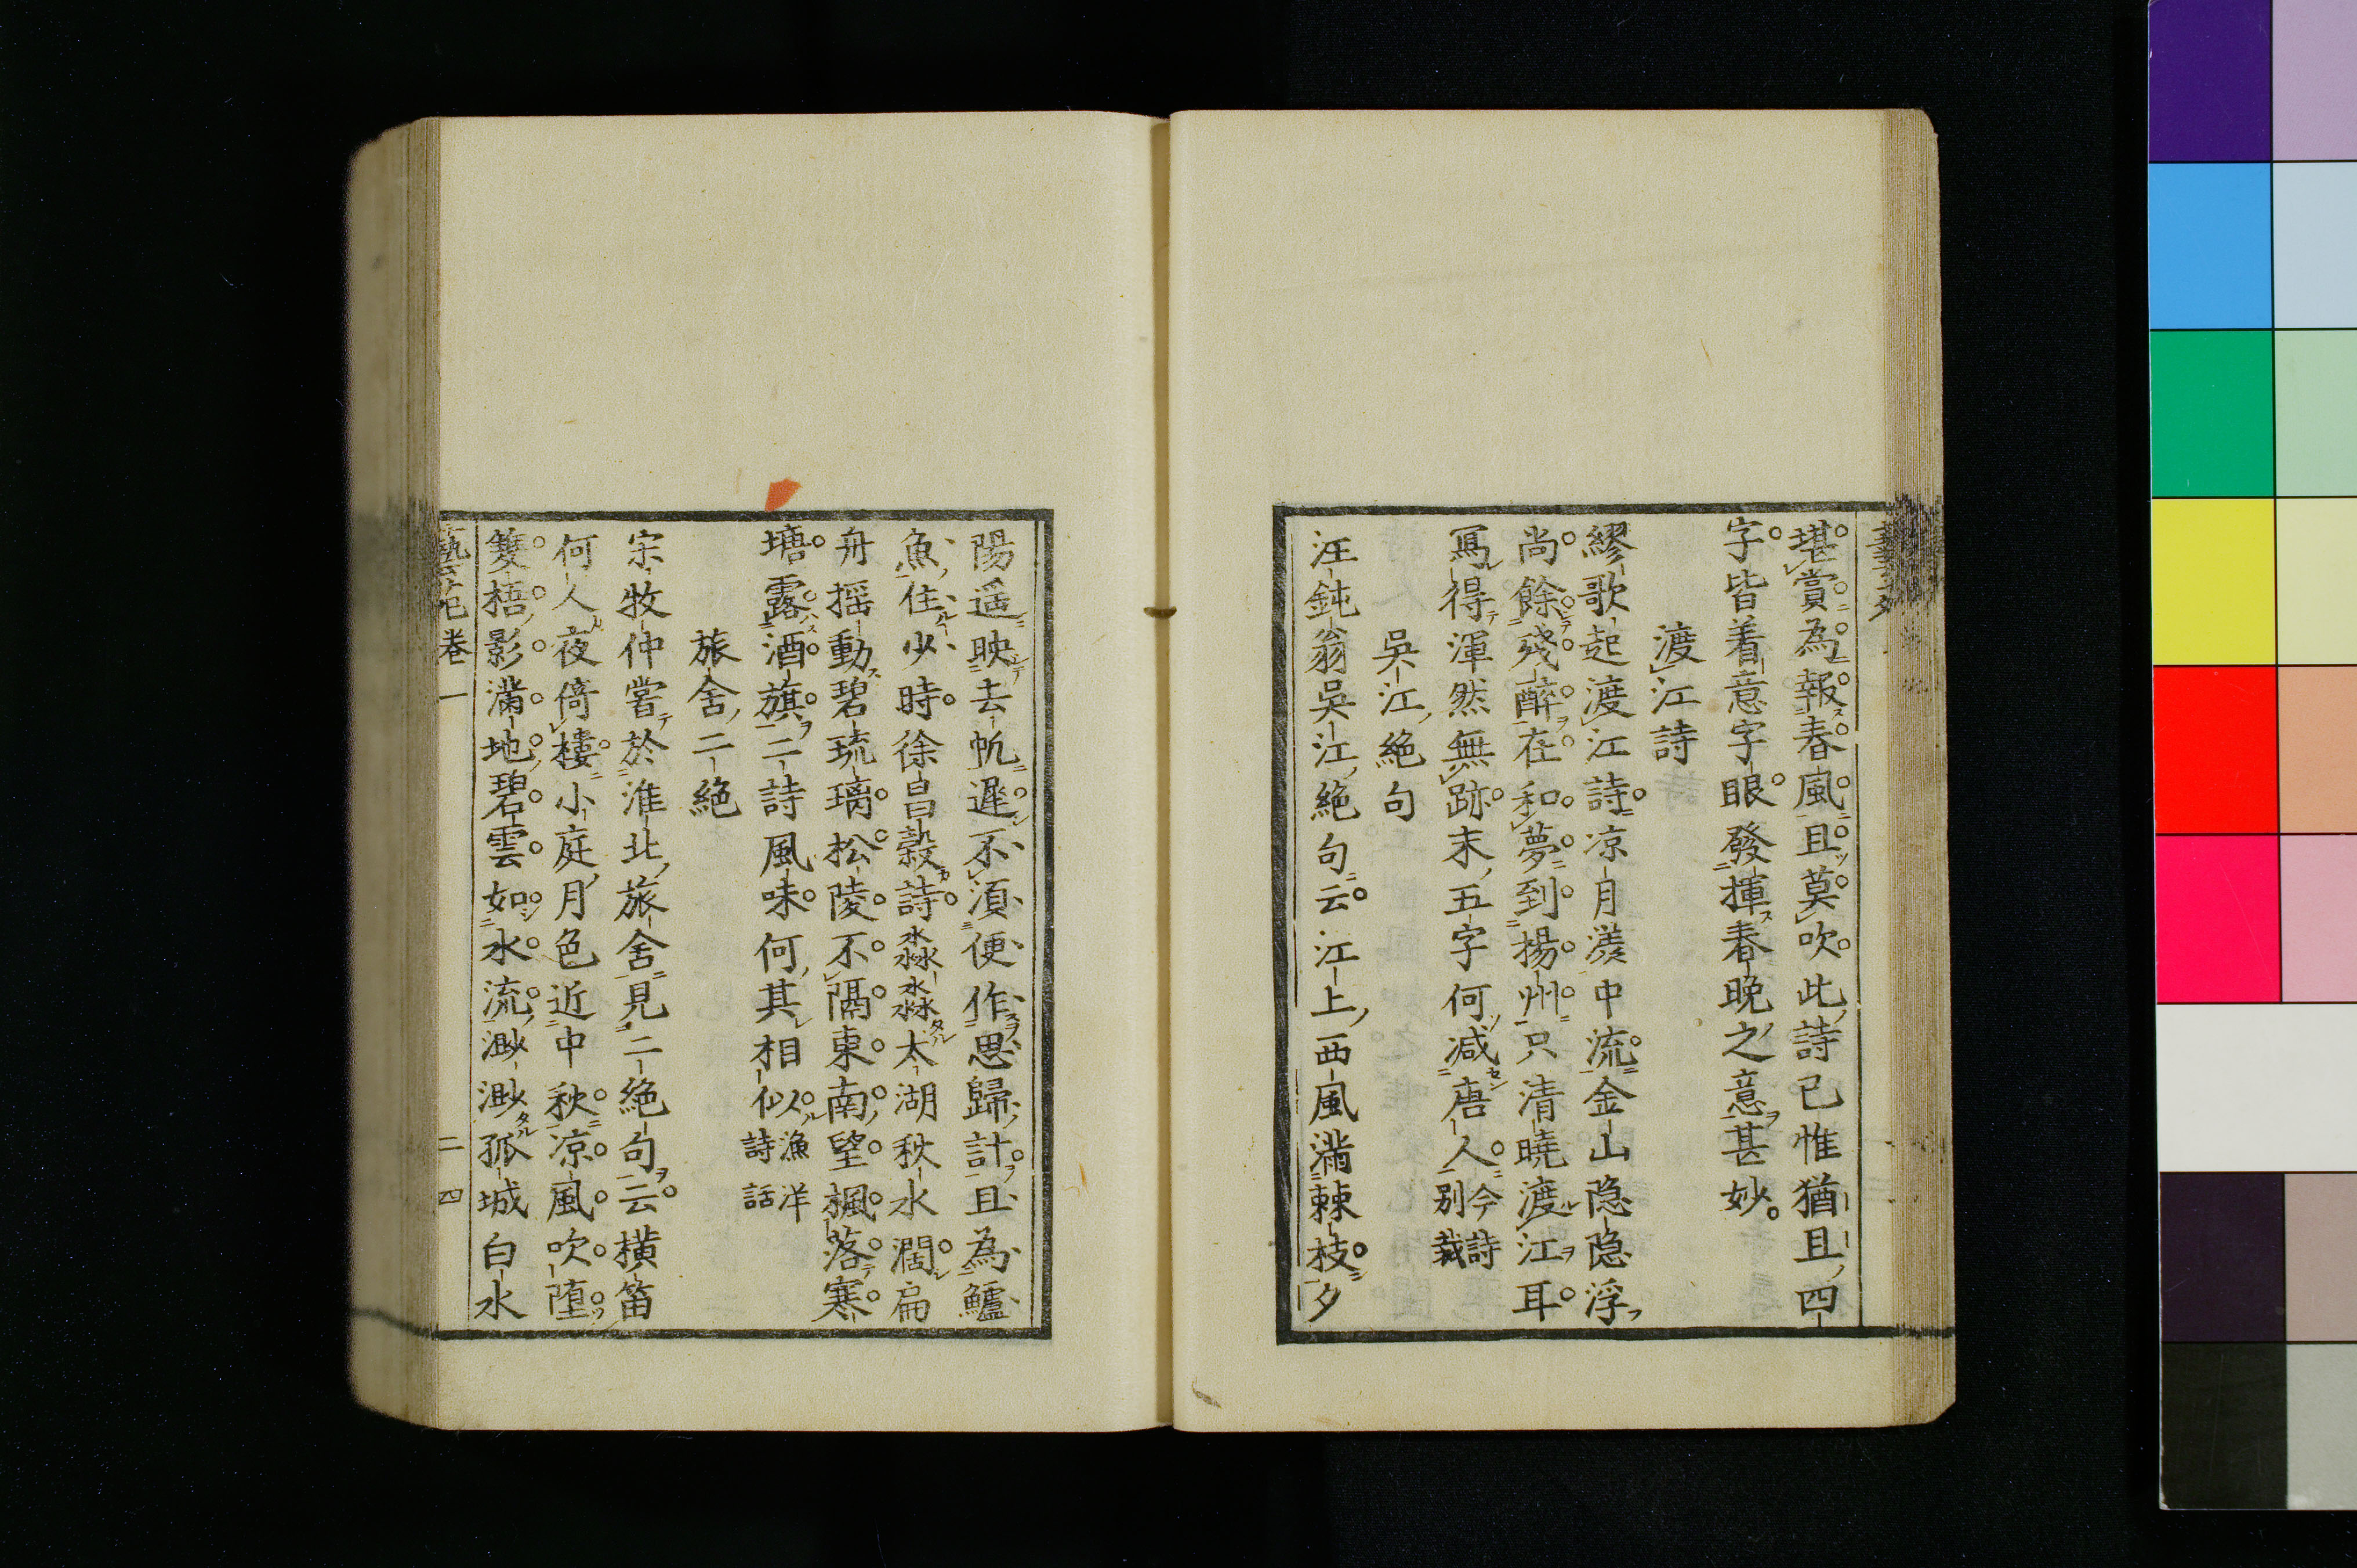 堪賞為報春風且莫吹此詩已惟猶且四
字皆着意字眼發揮春晩之意甚妙
渡江詩
繆歌起渡江詩凉月漾中流金山隐隐浮
尚餘殘醉在和夢到揚州只清曉渡江耳
冩得渾然無跡末五字何减唐人今詩別裁
吳江絕句
汪鈍翁吳江絕句云江上西風滿棘枝夕
陽遥映去帆遲不湏便作思歸計且為鱸
魚住少時徐昌穀詩淼淼太湖秋水濶扁
舟揺動碧琉璃松陵不隔東南望楓落寒
塘露酒旗二詩風味何其相似漁洋詩話
旅舍二絕
宗牧仲嘗於淮北旅舍見二絕句云橫笛
何人夜倚樓小庭月色近中秋凉風吹堕
雙梧影滿地碧雲如水流渺渺孤城白水
藝苑卷一 二四